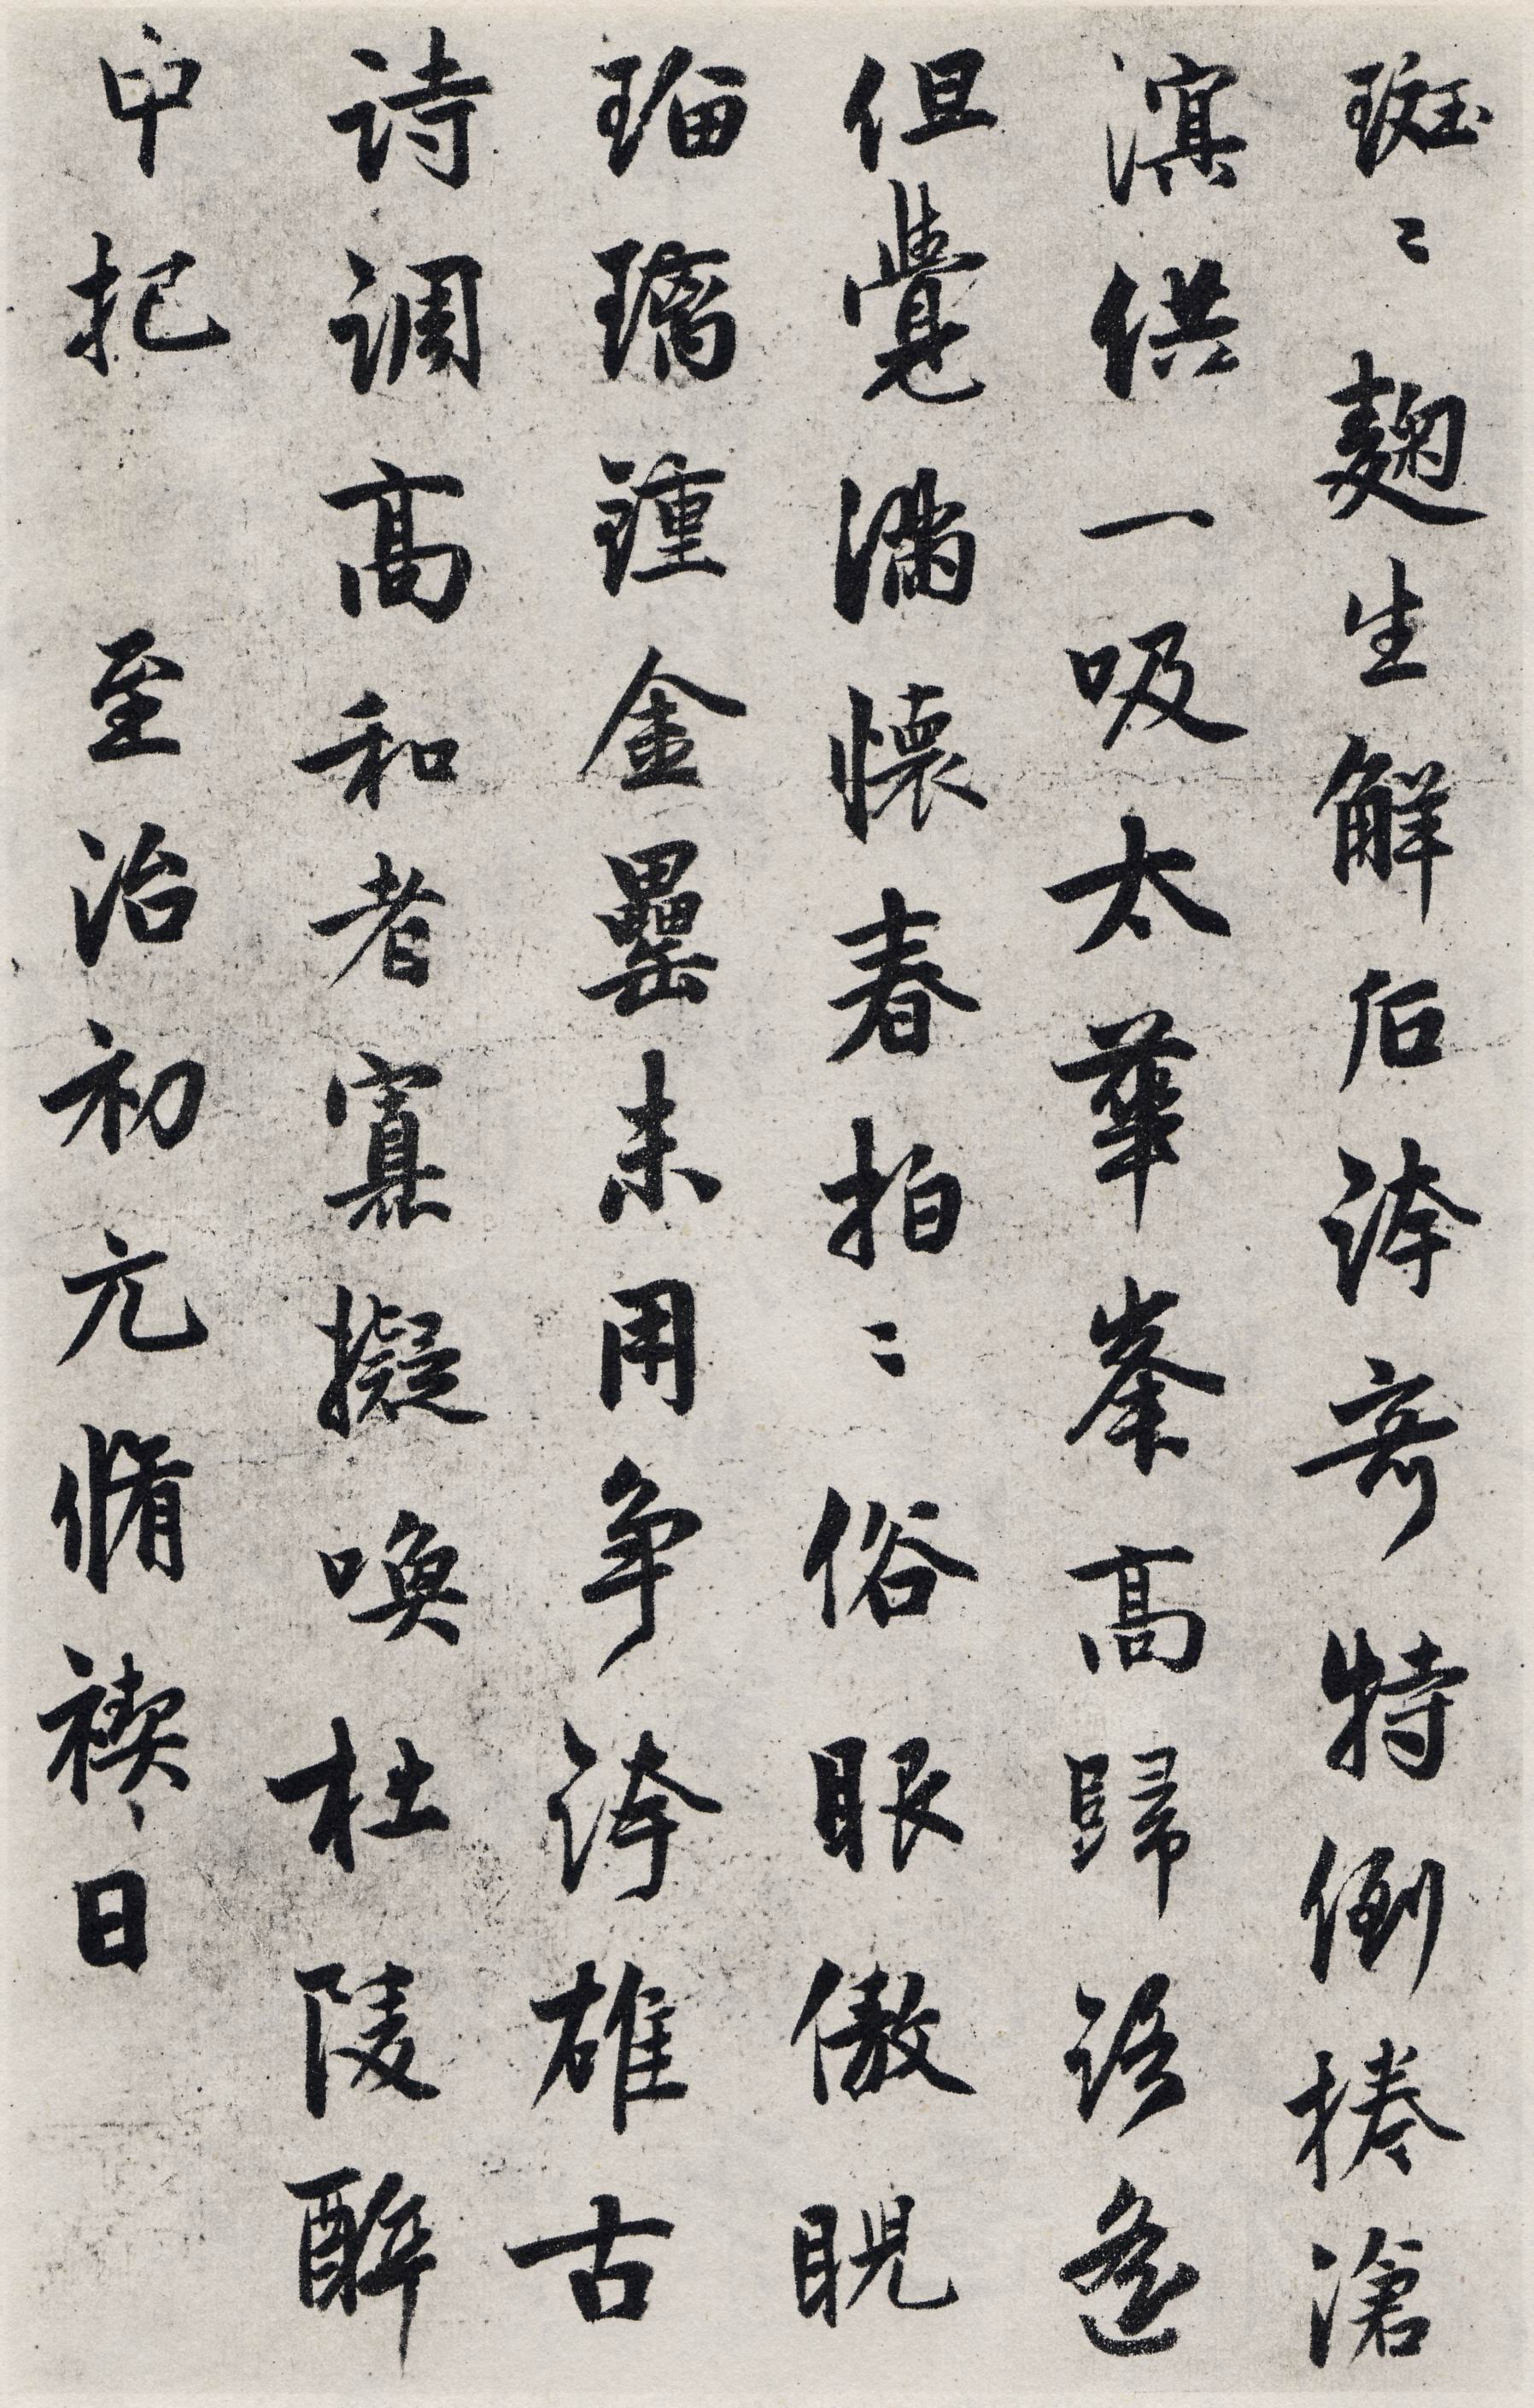 斑〻麹生解后誇奇特倒捲滄
溟供一吸太華峯高歸語遙
但覺滿懷春拍〻俗眼傲睨
瑠璃鍾金罍未用爭誇雄古
詩調高和者寡擬喚杜陵醉
中把　至治初元脩禊日